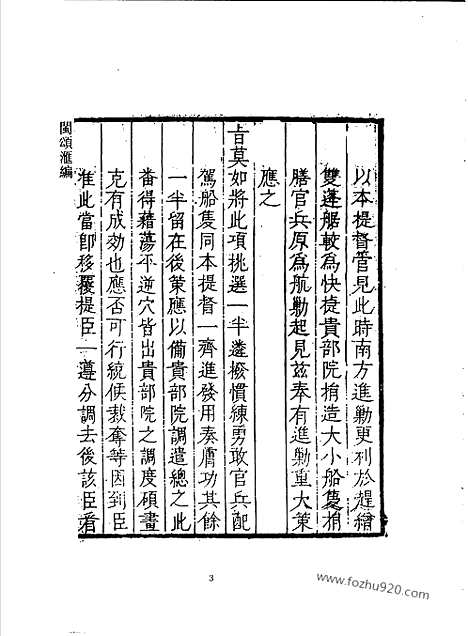 以本提督管見此時南方進勦更利於趕繒
雙蓬艍較為快捷貴部院捐造大小船隻捐
膳官兵原為航勦起見茲奉有進勦重大策
應之
旨莫如將此項挑選一半遴撥慣練勇敢官兵配
駕船隻同本提督一齊進發用奏膚功其餘
一半留在後策應以備貴部院調遣總之此
番得藉蕩平逆穴皆出貴部院之調度碩畫
克有成効也應否可行統候裁奪等因到臣
准此當即移覆提臣一遵分調去後該臣看
閩頌滙編
3
www.fozhu920.com